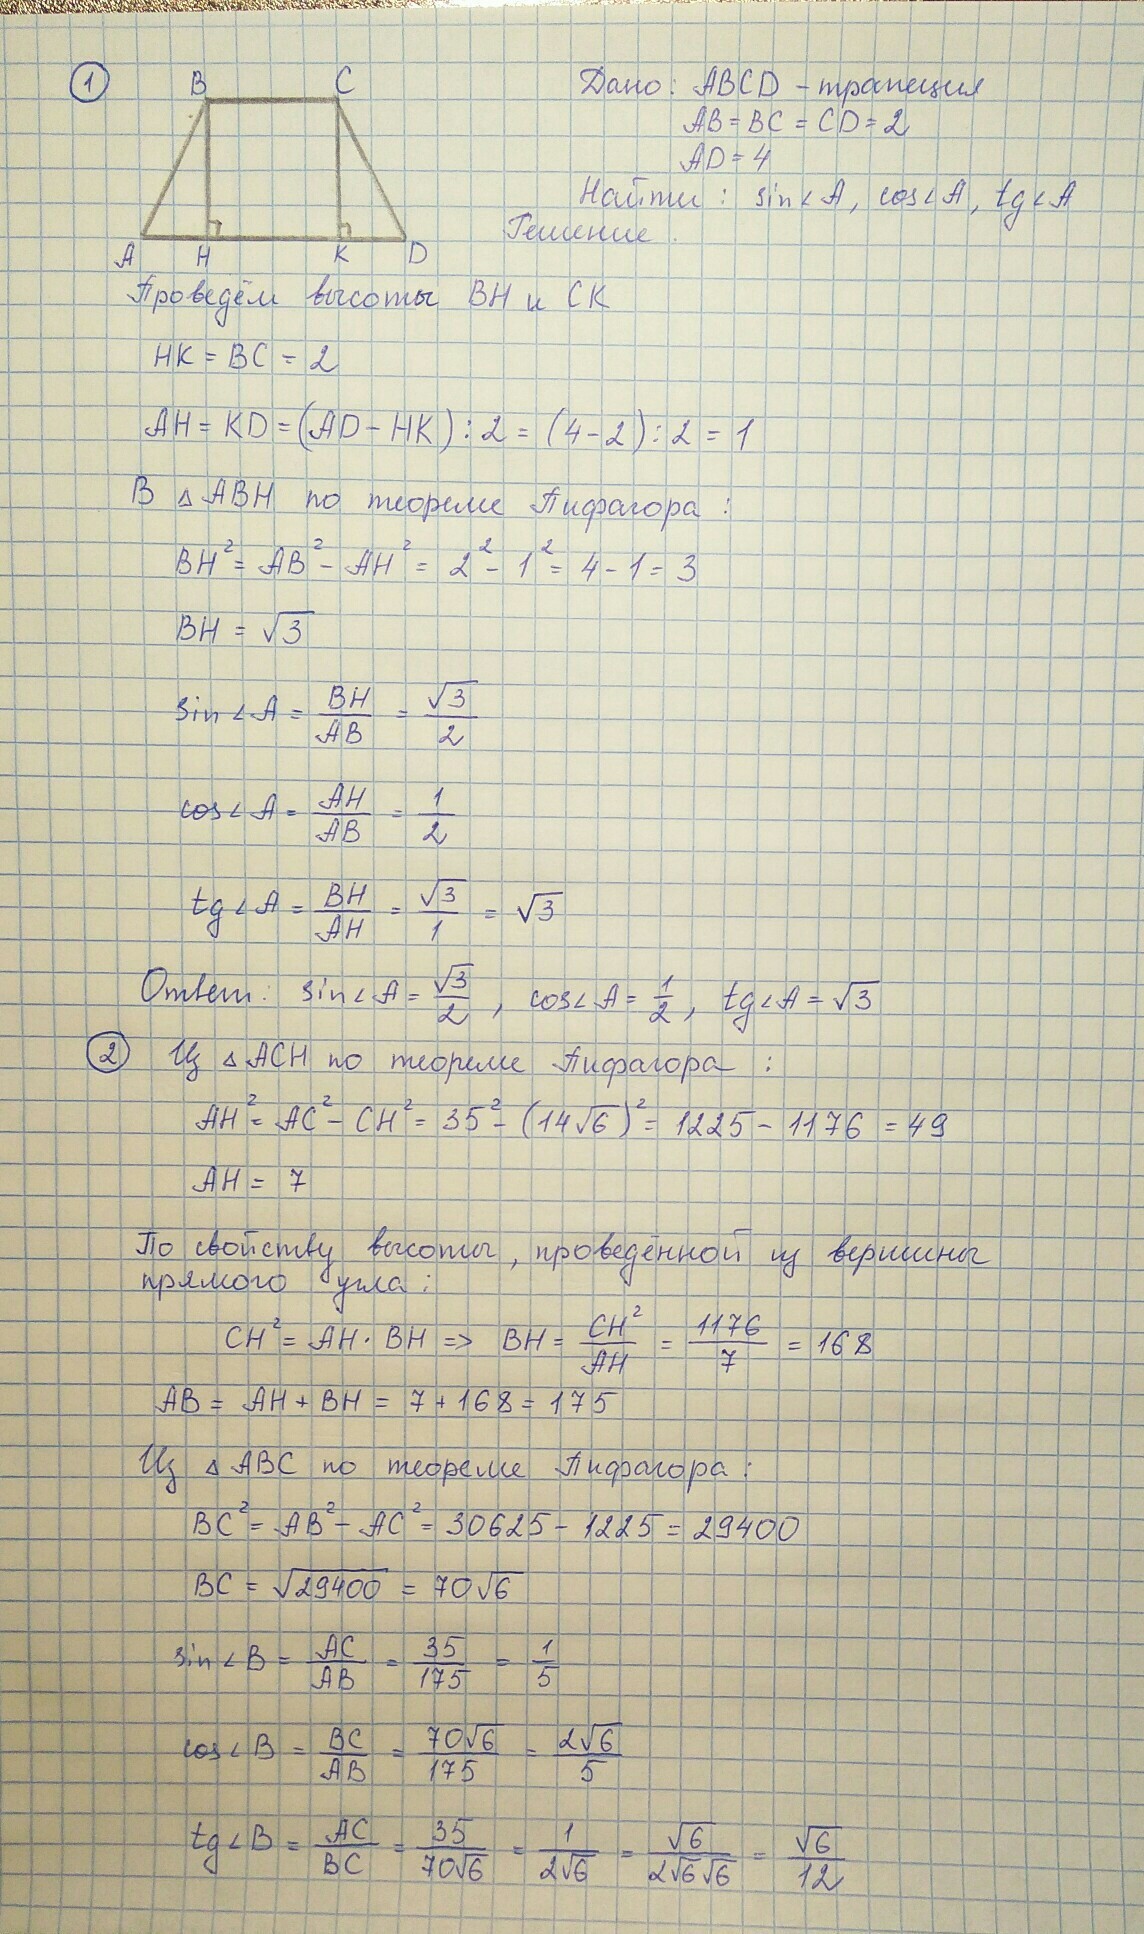 1
B C
A H K D
Дано: ABCD - трапеция
AB = BC = CD = 2
AD = 4
Найти: sin∠A, cos∠A, tg∠A
Решение.
Проведём высоты BH и CK
HK = BC = 2
AH = KD = (AD - HK) : 2 = (4 - 2) : 2 = 1
В △ABH по теореме Пифагора:
BH² = AB² - AH² = 2² - 1² = 4 - 1 = 3
BH = √3
sin∠A = BH/AB = √3/2
cos∠A = AH/AB = 1/2
tg∠A = BH/AH = √3/1 = √3
Ответ: sin∠A = √3/2, cos∠A = 1/2, tg∠A = √3
2 Из △ACH по теореме Пифагора:
AH² = AC² - CH² = 35² - (14√6)² = 1225 - 1176 = 49
AH = 7
По свойству высоты, проведённой из вершины
прямого угла:
CH² = AH · BH => BH = CH²/AH = 1176/7 = 168
AB = AH + BH = 7 + 168 = 175
Из △ABC по теореме Пифагора:
BC² = AB² - AC² = 30625 - 1225 = 29400
BC = √29400 = 70√6
sin∠B = AC/AB = 35/175 = 1/5
cos∠B = BC/AB = 70√6/175 = 2√6/5
tg∠B = AC/BC = 35/70√6 = 1/2√6 = √6/2√6√6 = √6/12